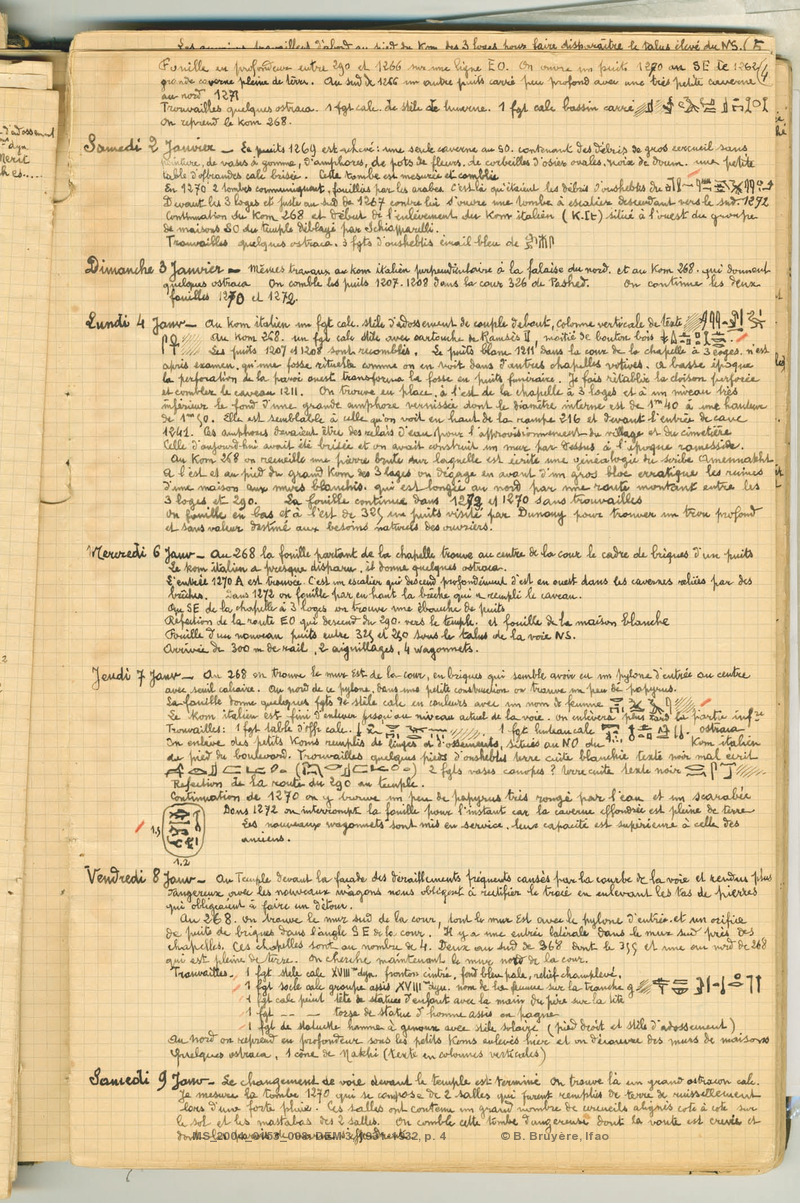 Les anciens travaillent d'abord au pied du Kom des 3 loges pour faire disparaître le talus élevé du NS. (
Fouille en profondeur entre 290 et 1266 sur une ligne EO. On ouvre un puits 1270 au SE de 1262
grande caverne pleine de terre. Au sud de 1266 un autre puits carré peu profond avec une très petite caverne
au nord 1271
Trouvailles quelques ostraca. 1 fgt calc. de stèle de lucarne. 1 fgt calc bassin carré
On reprend le Kom 268.
Samedi 2 Janvier – Le puits 1269 est achevé: une seule caverne au SO. contenant des débris de gros cercueil sans
peinture, de vases à gomme, d'amphores, de pots de fleurs, de corbeilles d'osier ovales, noix de doum. une petite
table d'offrandes calc brisée. Cette tombe est mesurée et comblée
En 1270 2 tombes communiquant, fouillées par les arabes. C'est là qu'étaient les débris d'oushebtis du
Devant les 3 loges et juste au sud de 1267 contre lui s'ouvre une tombe à escalier descendant vers le sud. 1272
Continuation du Kom 268 et début de l'enlèvement du Kom italien (K.It) situé à l'ouest du groupe
de maisons SO du temple déblayé par Schiapparelli.
Trouvailles quelques ostraca. 3 fgts d'oushebtis émail bleu de
Dimanche 3 Janvier – Mêmes travaux au kom italien perpendiculaire à la falaise du nord. et au Kom 268. qui donnent
quelques ostraca On comble les puits 1207. 1208 dans la cour 326 de Pashed. On continue les deux
fouilles 1270 et 1272.
Lundi 4 Janv – Au Kom italien un fgt calc. stèle d'adossement de couple debout, colonne verticale de texte
Au Kom 268. un fgt calc stèle avec cartouche de Ramsès II, moitié de boutre bois
Les puits 1207 et 1208 sont recomblés. Le puits blanc 1211 dans la cour de la chapelle à 3 loges. n'est
après examen, qu'une fosse rituelle comme on en voit dans d'autres chapelles votives. à basse époque
la perforation de la paroi ouest transforma la fosse en puits funéraire. Je fais rétablir la cloison perforée
et combler le caveau 1211. On trouve en place, à l'est de la chapelle à 3 loges et à un niveau très
inférieur le fond d'une grande amphore vernissée dont le diamètre interne est de 1m40 à une hauteur
de 1m50. Elle est semblable à celle qu'on voit en haut de la rampe 216 et devant l'entrée de cave
1241. Ces amphores devaient être des relais d'eau pour l'approvisionnement du village et du cimetière
Celle d'aujourd'hui avait été brisée et on avait construit un mur par dessus à l'époque ramesside.
Au Kom 268 on recueille une pierre brute sur laquelle est écrite une généalogie du scribe Amennakht
A l'est et au pied du grand Kom des 3 loges on dégage en avant d'un gros bloc erratique les ruines
d'une maison aux murs blanchis. qui est longée au nord par une route montant entre les
3 loges et 290. La fouille continue dans 1272 et 1270 sans trouvailles
On fouille en bas et à l'est de 325 un puits visité par pour trouver un trou profond
et sans valeur destiné aux besoins naturels des ouvriers.
Mercredi 6 Janv – Au 268 la fouille partant de la chapelle trouve au centre de la cour le cadre de briques d'un puits
Le Kom italien a presque disparu. il donne quelques ostraca.
L'entrée 1270 A est trouvée. C'est un escalier qui descend profondément d'est en ouest dans les cavernes reliées par des
brèches. Dans 1272 on fouille par en haut la brèche qui a rempli le caveau.
Au SE de la chapelle à 3 loges on trouve une ébauche de puits
Réfection de la route EO qui descend du 290. vers le temple. et fouille de la maison blanche
Fouille d'un nouveau puits entre 325 et 290 sous le talus de la voie NS.
Arrivée de 300 m de rail, 2 aiguillages, 4 wagonnets.
Jeudi 7 Janv – Au 268 on trouve le mur Est de la cour, en briques qui semble avoir eu un pylone d'entrée au centre
avec seuil calcaire. Au nord de ce pylone, dans une petite construction on trouve un peu de papyrus.
La fouille donne quelques fgts de stèle calc en couleurs avec un nom de femme
Le Kom italien est fini d'enlever jusqu'au niveau actuel de la voie. on enlèvera plus tard la partie infre
Trouvailles: 1 fgt table d'off. calc. 1 fgt linteau calc ostraca
On enlève des petits Koms remplis de linges et d'ossements, situés au NO du Kom italien
au pied de boulevard. Trouvailles quelques pieds d'oushebtis terre cuite blanchie texte noir mal écrit
2 fgts vases canopes? terre cuite texte noir
Réfection de la route du 290 au temple.
Continuation de 1270 on y trouve un peu de papyrus très rongé par l'eau et un scarabée
Dans 1272 on interrompt la fouille pour l'instant car la caverne effondrée est pleine de terre
1.5 Les nouveaux wagonnets sont mis en service. leur capacité est supérieure à celle des
anciens.
1.2
Vendredi 8 Janv – Au Temple devant la façade des déraillements fréquents causés par la courbe de la voie et rendus plus
dangereux avec les nouveaux wagons nous obligent à rectifier le tracé en enlevant les tas de pierres
qui obligeaient à faire un détour.
Au 268. On trouve le mur sud de la cour, dont le mur Est avec le pylone d'entrée. et un orifice
de puits de briques dans l'angle SE de la cour. Il y a une entrée latérale dans le mur sud près des
chapelles. Ces chapelles sont au nombre de 4. Deux au sud de 368 dont le 355 et une au nord de 268
qui est pleine de terre. On cherche maintenant le mur nord de la cour.
Trouvailles. 1 fgt stèle calc XVIIIme dyn. fronton cintré. fond bleu pale, relief champlevé.
1 fgt socle calc groupe assis XVIIIme dyn. nom de la femme sur la tranche g
1 fgt calc peint tête de statues d'enfant avec la main du père sur la tête
1 fgt – – – torse de statue d'homme assis en pagne
1 fgt de statuette homme à genoux avec stèle solaire (pied droit et stèle d'adossement)
Au nord on reprend en profondeur sous les petits Koms enlevés hier et on découvre des murs de maisons
Quelques ostraca, 1 cône de Nakhi (texte en colonnes verticales)
Samedi 9 Janv – Le changement de voie devant le temple est terminé On trouve là un grand ostracon calc.
Je mesure la tombe 1270 qui se compose de 2 salles qui furent remplies de terre de ruissellement
lors d'une forte pluie. Ces salles ont contenu un grand nombre de cercueils alignés cote à cote sur
le sol et les mastabas des 2 salles. On comble cette tombe dangereuse dont la voute est crevée et
MS_2004_0153_008. DEM 3, 1931-1932, p. 4 © B. Bruyère, Ifao